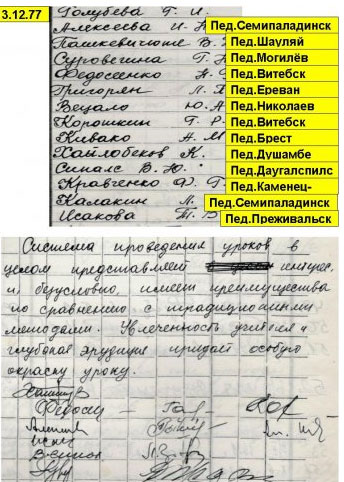 3.12.77
Голубева Г. И.
Алексеева И. Пед.Семипаладинск
Пашкевичюте В. Пед.Шауляй
Суровегина Г. Пед.Могилёв
Федосеенко Пед.Витебск
Григорян Л. Пед.Ереван
Вецало Ю. А Пед.Николаев
Корошкин Г. Р. Пед.Витебск
Кивако А. М Пед.Брест
Хайлобеков К. Пед.Душамбе
Синалс В. Ю. Пед.Даугалспилс
Кравченко Ф. Г. Пед.Каменец-
Калакин Л. Пед.Семипаладинск
Исакова Т. В Пед.Преживальск
Система проведения уроков в
целом представляет интерес,
и, безусловно, имеет преимущества
по сравнению с традиционными
методами. Увлеченность учителя и
глубокая эрудиция придает особую
окраску уроку.